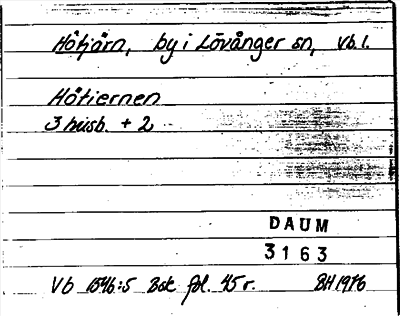 Håkjärn, by i Lövånger sn, Vb. l.
Håtiernen
3 husb. + 2
DAUM
3163
Vb 1546:5 Bsk fol. 45 r. BH 1976